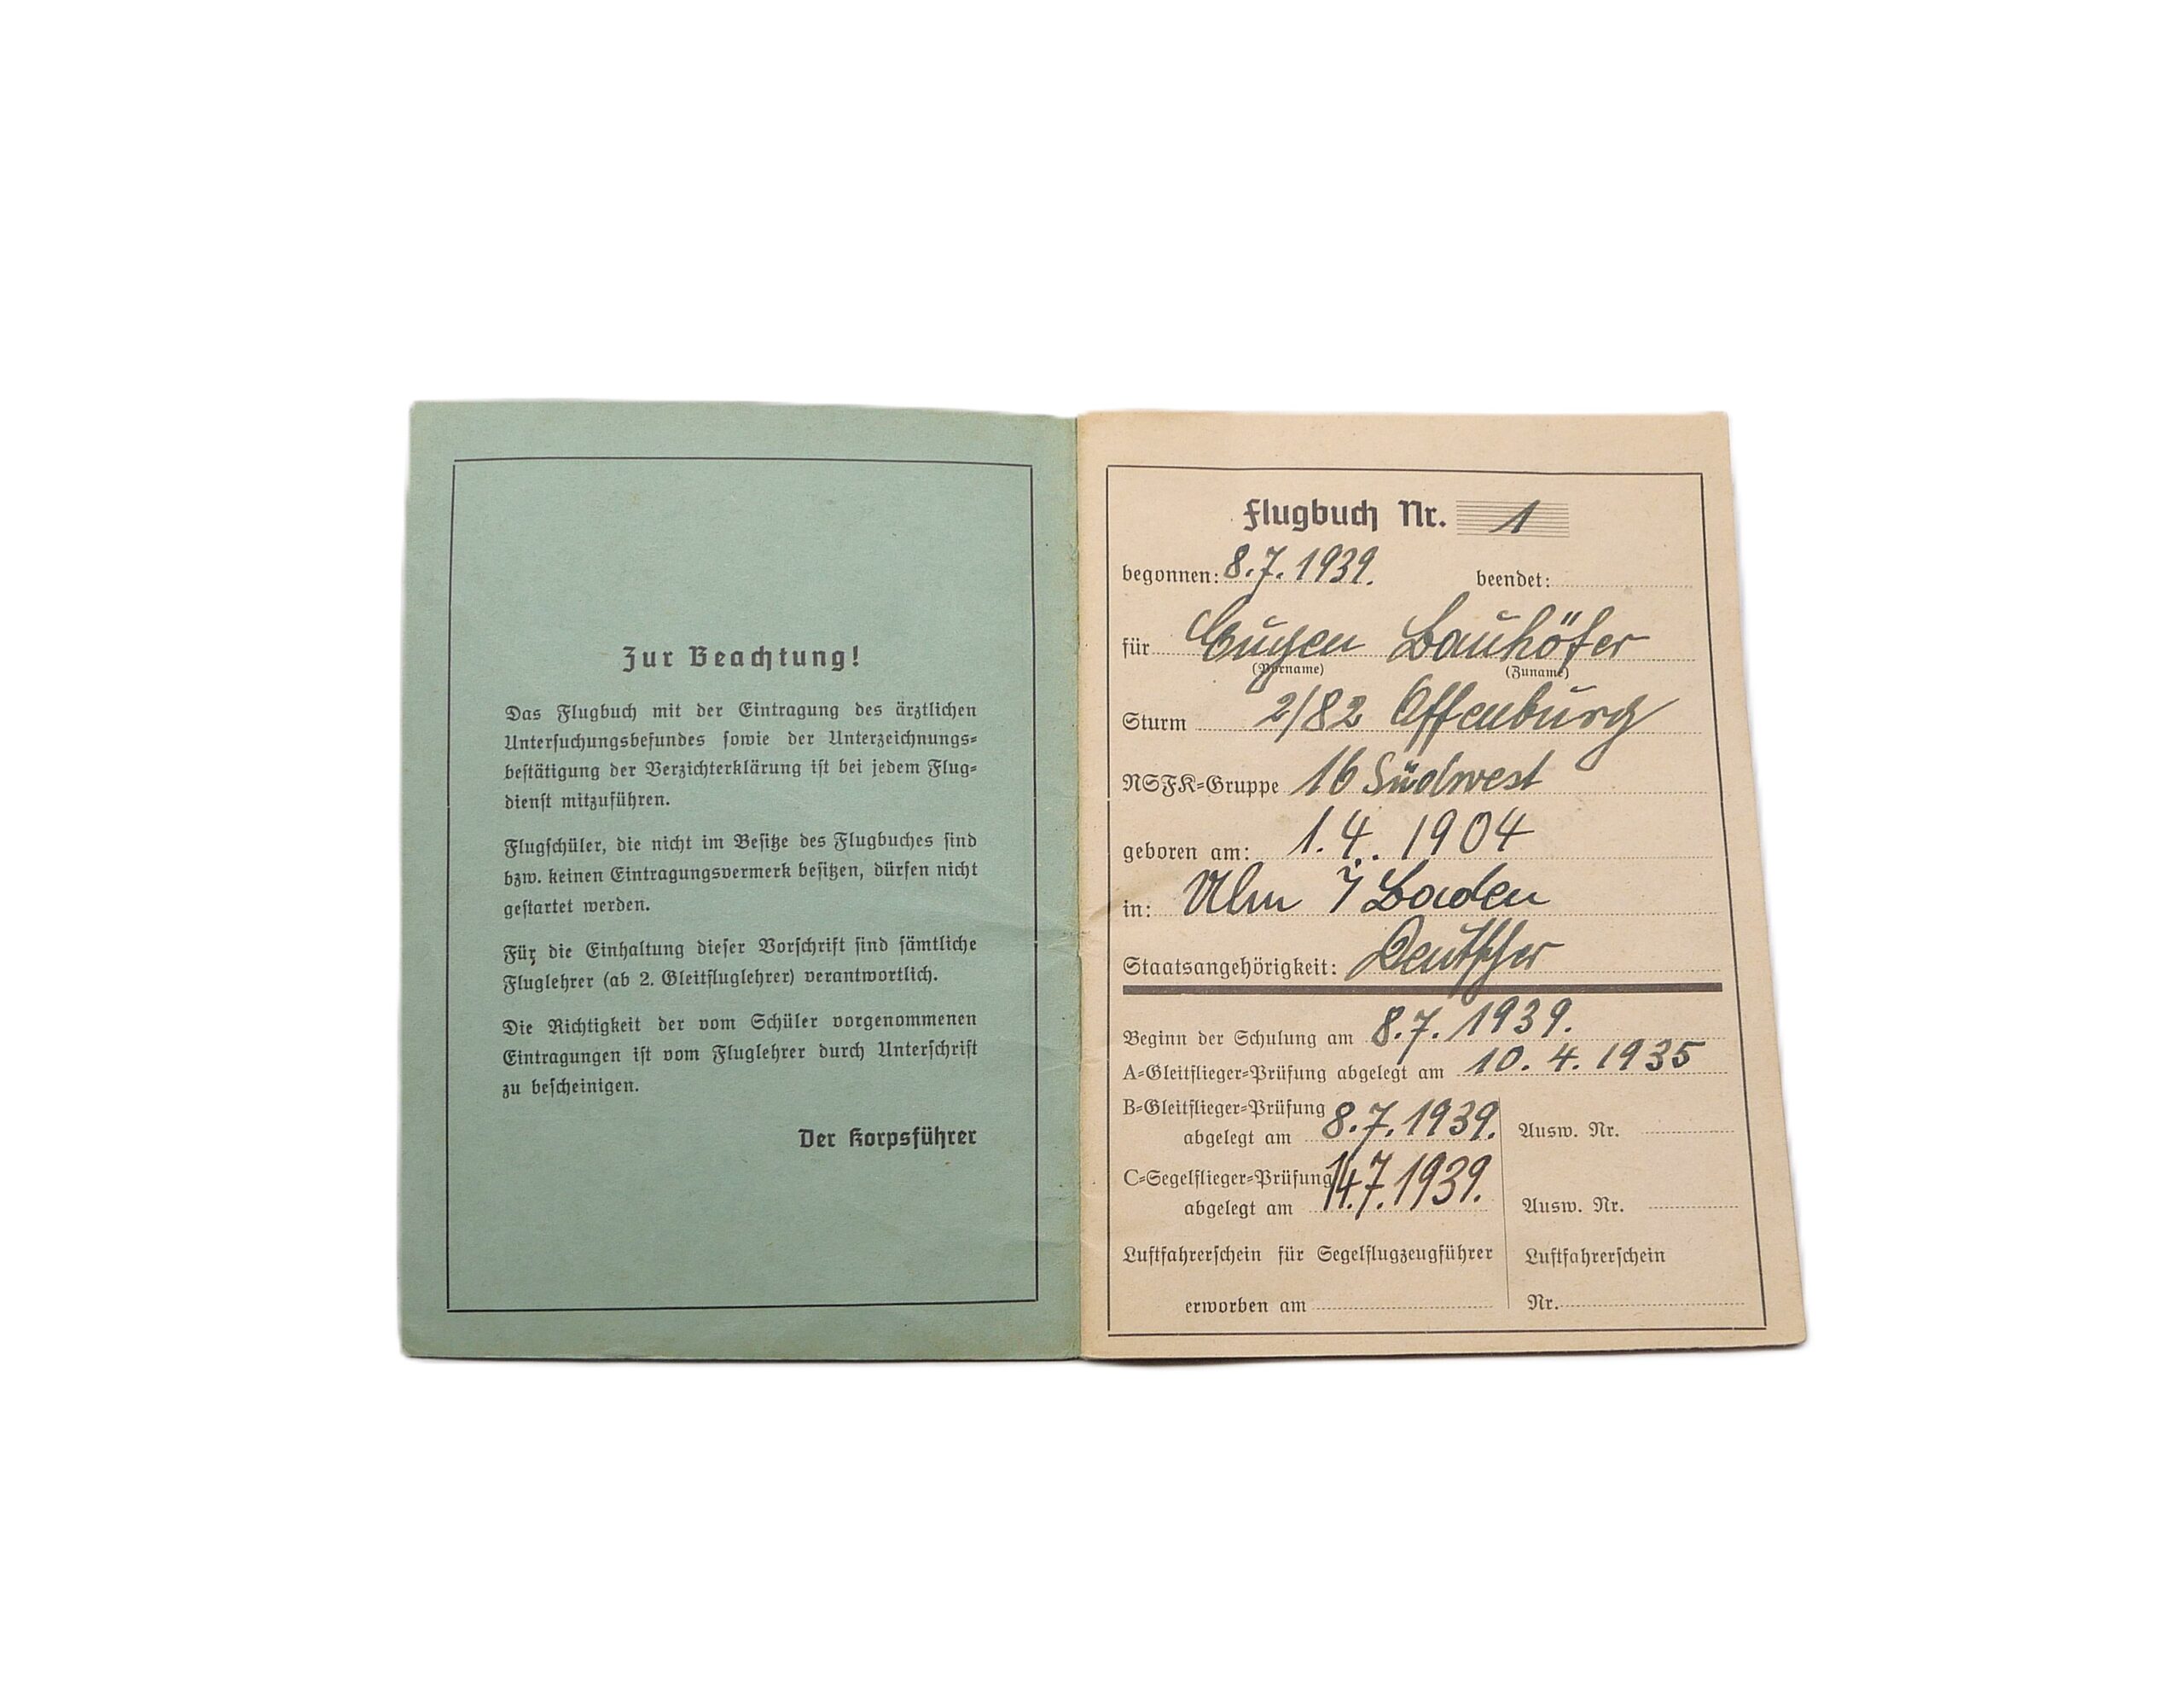 Zur Beachtung!
Das Flugbuch mit der Eintragung des ärztlichen
Untersuchungsbefundes sowie der Unterzeichnungs-
bestätigung der Verzichterklärung ist bei jedem Flug-
dienst mitzuführen.
Flugschüler, die nicht im Besitze des Flugbuches sind
bzw. keinen Eintragungsvermerk besitzen, dürfen nicht
gestartet werden.
Für die Einhaltung dieser Vorschrift sind sämtliche
Fluglehrer (ab 2. Gleitfluglehrer) verantwortlich.
Die Richtigkeit der vom Schüler vorgenommenen
Eintragungen ist vom Fluglehrer durch Unterschrift
zu bescheinigen.
Der Korpsführer
Flugbuch Nr. 1
begonnen: 8.7.1939. beendet:
für Eugen Bauhöfer
(Vorname) (Zuname)
Sturm 2/82 Offenburg
NSFK-Gruppe 16 Südwest
geboren am: 1.4. 1904
in: Ulm i Baden
Staatsangehörigkeit: Deutscher
Beginn der Schulung am 8.7.1939.
A-Gleitflieger-Prüfung abgelegt am 10.4.1935
B-Gleitflieger-Prüfung
abgelegt am 8.7.1939. Ausw. Nr.
C-Segelflieger-Prüfung
abgelegt am 14.7.1939. Ausw. Nr.
Luftfahrerschein für Segelflugzeugführer Luftfahrerschein
erworben am Nr.